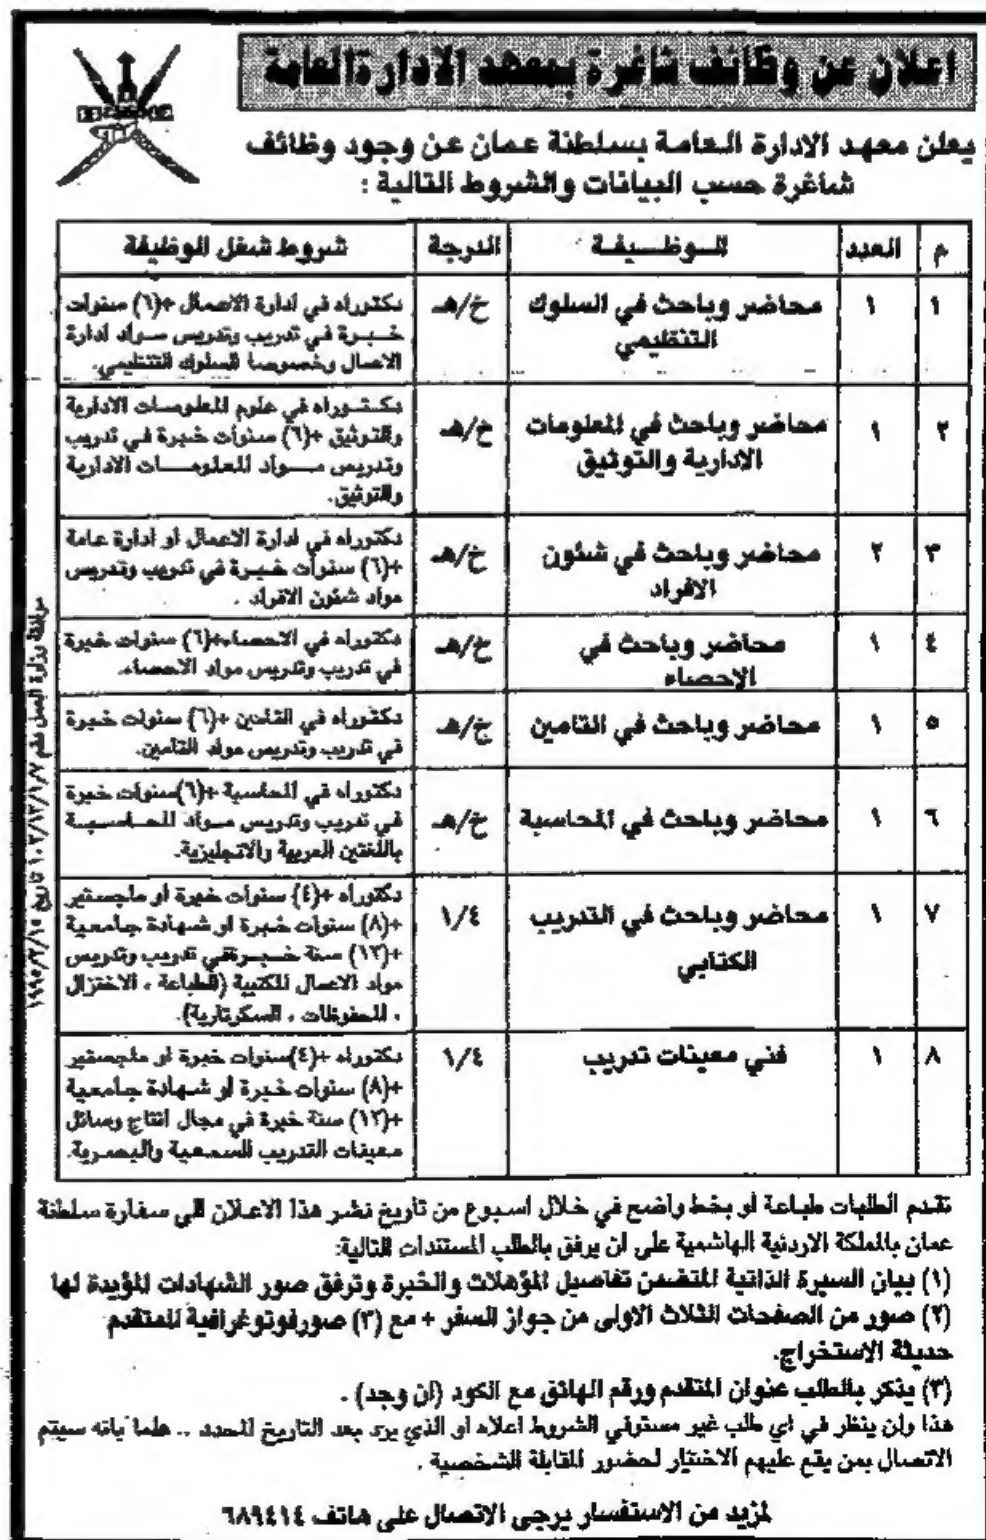 اعلان عن وظائف شاغرة بمعهد الادارة العامة
يعلن معهد الادارة العامة بسلطنة عمان عن وجود وظائف
شاغرة حسب البيانات والشروط التالية :
م العدد الوظيفة الدرجة شروط شغل الوظيفة
١ ١ محاضر وباحث في السلوك التنظيمي خ/هـ
دكتوراه في ادارة الاعمال +(٦) سنوات
خبرة في تدريب وتدريس مواد ادارة
الاعمال وخصوصا السلوك التنظيمي.
٢ ١ محاضر وباحث في المعلومات الادارية والتوثيق خ/هـ
دكتوراه في علوم المعلومات الادارية
والتوثيق +(٦) سنوات خبرة في تدريب
وتدريس مواد المعلومات الادارية
والتوثيق.
٣ ٢ محاضر وباحث في شئون الافراد خ/هـ
دكتوراه في ادارة الاعمال أو ادارة عامة
+(٦) سنوات خبرة في تدريب وتدريس
مواد شئون الافراد .
٤ ١ محاضر وباحث في الاحصاء خ/هـ
دكتوراه في الاحصاء+(٦) سنوات خبرة
في تدريب وتدريس مواد الاحصاء.
٥ ١ محاضر وباحث في التامين خ/هـ
دكتوراه في التامين +(٦) سنوات خبرة
في تدريب وتدريس مواد التامين.
٦ ١ محاضر وباحث في المحاسبة خ/هـ
دكتوراه في المحاسبة +(٦)سنوات خبرة
في تدريب وتدريس مواد المحاسبة
باللغتين العربية والانجليزية.
٧ ١ محاضر وباحث في التدريب الكتابي ١/٤
دكتوراه +(٤) سنوات خبرة او ماجستير
+(٨) سنوات خبرة او شهادة جامعية
+(١٢) سنة خبرة في تدريب وتدريس
مواد الاعمال المكتبية (الطباعة ، الاختزال
، المحفوظات ، السكرتارية).
٨ ١ فني معينات تدريب ١/٤
دكتوراه +(٤)سنوات خبرة او ماجستير
+(٨) سنوات خبرة او شهادة جامعية
+(١٢) سنة خبرة في مجال انتاج وسائل
معينات التدريب السمعية والبصرية.
تقدم الطلبات طباعة او بخط واضح في خلال اسبوع من تأريخ نشر هذا الاعلان الى سفارة سلطنة
عمان بالمملكة الاردنية الهاشمية على ان يرفق بالطلب المستندات التالية:
(١) بيان السيرة الذاتية المتضمن تفاصيل المؤهلات والخبرة وترفق صور الشهادات المؤيدة لها
(٢) صور من الصفحات الثلاث الاولى من جواز السفر + مع (٣) صورفوتوغرافية للمتقدم
حديثة الاستخراج.
(٣) يذكر بالطلب عنوان المتقدم ورقم الهاتف مع الكود (ان وجد) .
هذا ولن ينظر في اي طلب غير مستوفي الشروط اعلاه او الذي يرد بعد التاريخ المحدد .. علما بانه سيتم
الاتصال بمن يقع عليهم الاختيار لحضور المقابلة الشخصية .
لمزيد من الاستفسار يرجى الاتصال على هاتف ٦٨٩٤١٤
موافقة وزارة العمل رقم ١٠٢/١٢/١/٧ تاريخ ١٩٩٥/٢/١٥